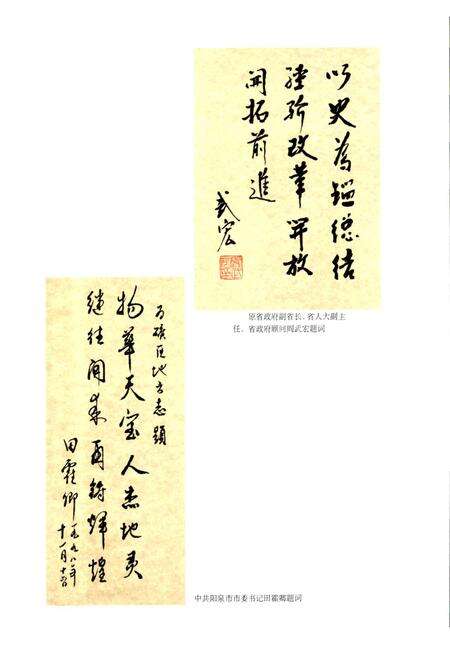 以史为鑑总结
经验改革开放
开拓前進
武宏
原省政府副省长、省人大副主
任、省政府顾问周武宏题词
为矿区地方志题
物华天宝人杰地灵
继往开来再铸辉煌
田霍卿
一九九八年
十一月十六日
中共阳泉市市委书记田霍卿题词